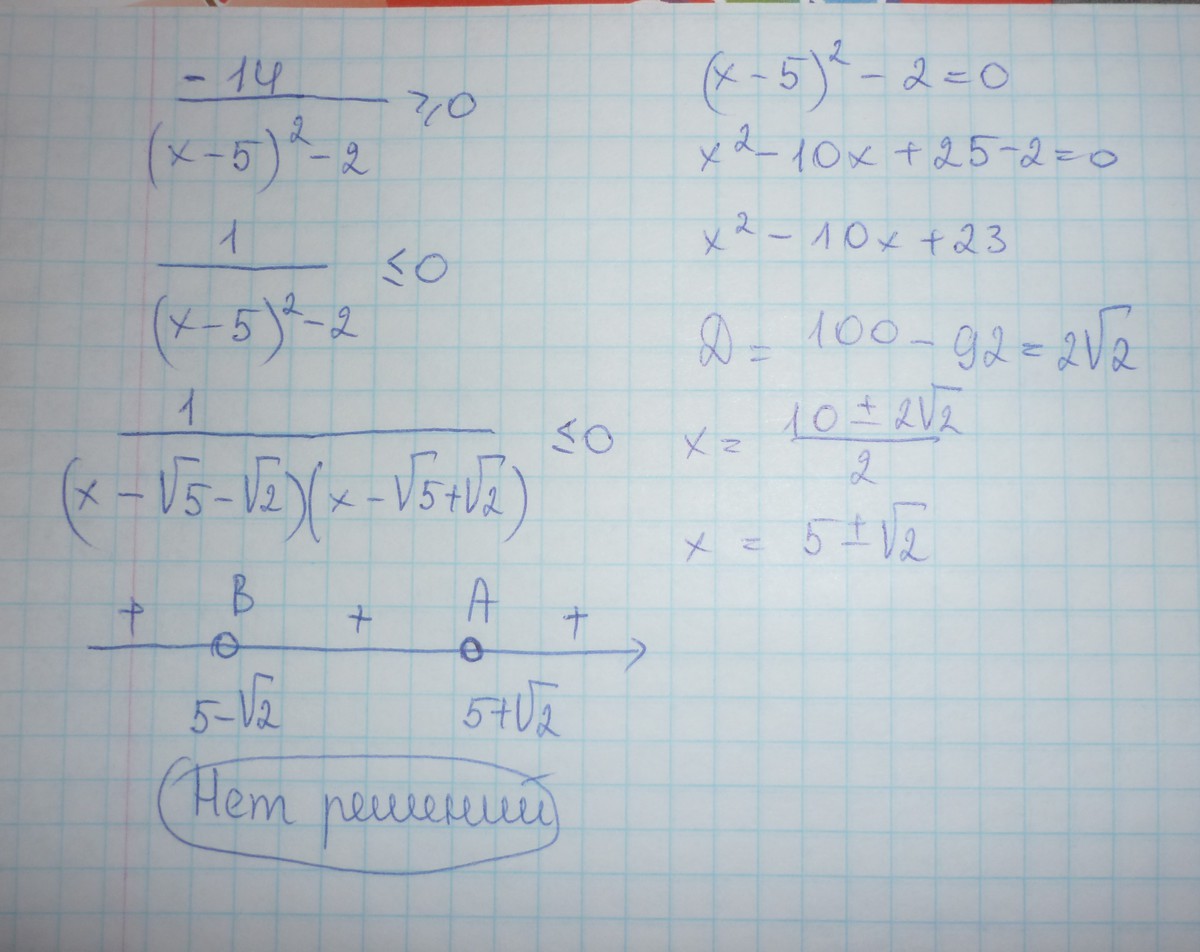 -14
───────── ⩾0
(x-5)²-2
1
───────── ≤0
(x-5)²-2
1
───────────────── ≤0
(x-√5-√2)(x-√5+√2)
+ B + A +
5-√2 5+√2
Нет решений
(x-5)²-2=0
x²-10x+25-2=0
x²-10x+23
D= 100-92=2√2
x= 10±2√2
─────
2
x = 5±√2